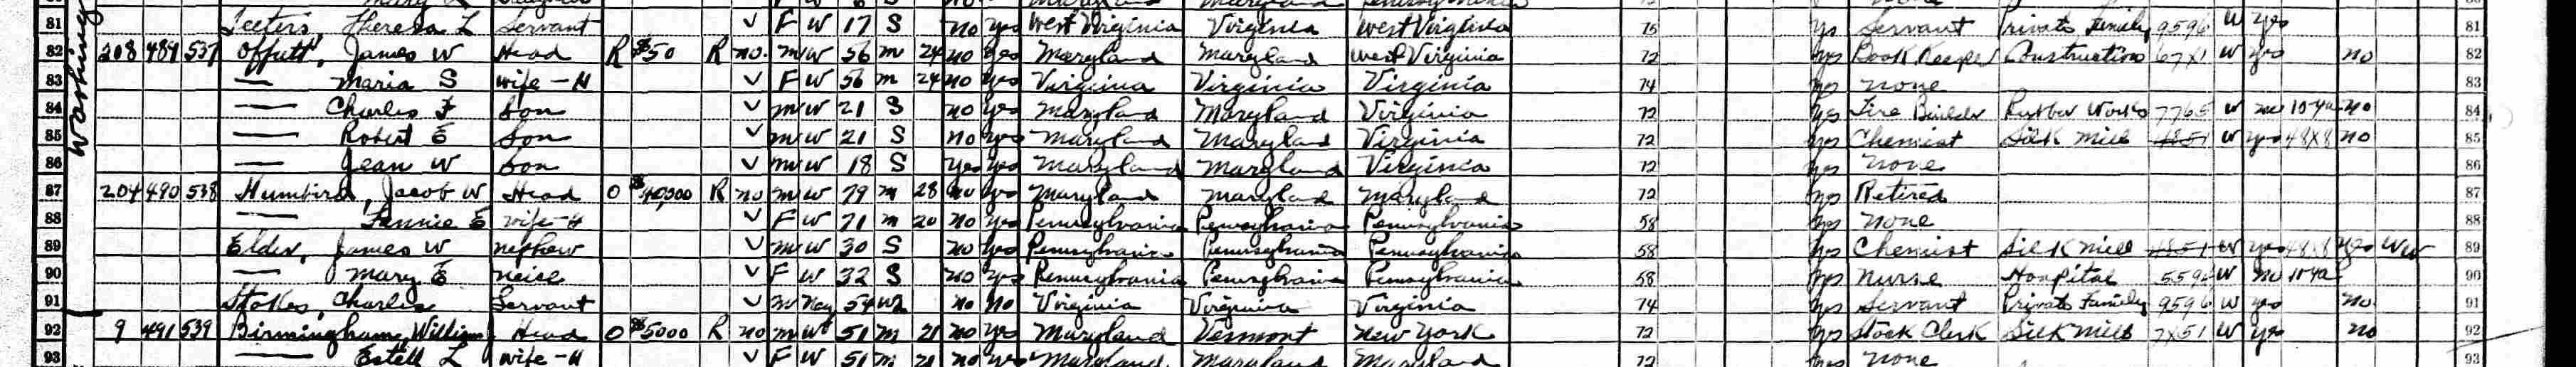 81 Teeters, Theresa L Servant ✓ F W 17 S no yes West Virginia Virginia West Virginia 75 yes Servant Private Family 9596 W yes 81
82 208 489 537 Offutt, James W Head R $50 R no m W 56 m 24 no yes Maryland Maryland West Virginia 72 yes Book Keeper Construction 67X1 W yes no 82
83 — Maria S wife-H ✓ F W 56 m 24 no yes Virginia Virginia Virginia 74 yes none 83
84 — Charles F Son ✓ m W 21 S no yes Maryland Maryland Virginia 72 yes Tire Builder Rubber Works 7765 W no 104a no 84
85 — Robert E Son ✓ m W 21 S no yes Maryland Maryland Virginia 72 yes Chemist Silk Mill 4851 W yes 48X8 no 85
86 — Jean W Son ✓ m W 18 S yes yes Maryland Maryland Virginia 72 yes none 86
87 204 490 538 Humbird, Jacob W Head O $40,000 R no m W 79 m 28 no yes Maryland Maryland Maryland 72 yes Retired 87
88 — Fannie E wife-H ✓ F W 71 m 20 no yes Pennsylvania Pennsylvania Pennsylvania 58 yes none 88
89 Elder, James W nephew ✓ m W 30 S no yes Pennsylvania Pennsylvania Pennsylvania 58 yes Chemist Silk mill 4851 W yes 48X8 yes WW 89
90 — Mary E neise ✓ F W 32 S no yes Pennsylvania Pennsylvania Pennsylvania 58 yes nurse Hospital 5592 W no 104a 90
91 Stokes, Charles Servant ✓ m Neg 54 Wd no no Virginia Virginia Virginia 74 yes Servant Private Family 9596 W yes no 91
92 9 491 539 Birmingham, William Head O $5000 R no m W 51 m 21 no yes Maryland Vermont New York 72 yes Stock Clerk Silk Mill 7X51 W yes no 92
93 — Estell L wife-H ✓ F W 51 m 21 no yes Maryland Maryland Maryland 72 yes none 93